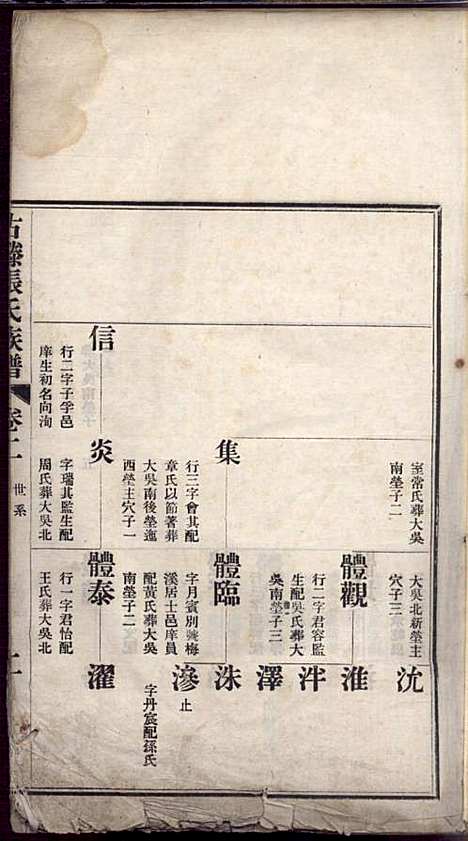 室常氏葬大吳
南塋子二
大吳北新塋主
穴子三
沈
體觀
行二字君容監
生配吳氏葬大
吳南塋子三
淮
泮
澤
集
行三字會其配
章氏以節著葬
大吳南後塋進
西塋主穴子一
體臨
字月賓別號梅
溪居士邑庠員
配黃氏葬大吳
南塋子二
洙
滲
止
字丹宸配孫氏
信
行二字子孚邑
庠生初名向洵
炎
字瑞其監生配
周氏葬大吳北
體泰
行一字君怡配
王氏葬大吳北
濯
古滕張氏族譜
卷二
世系